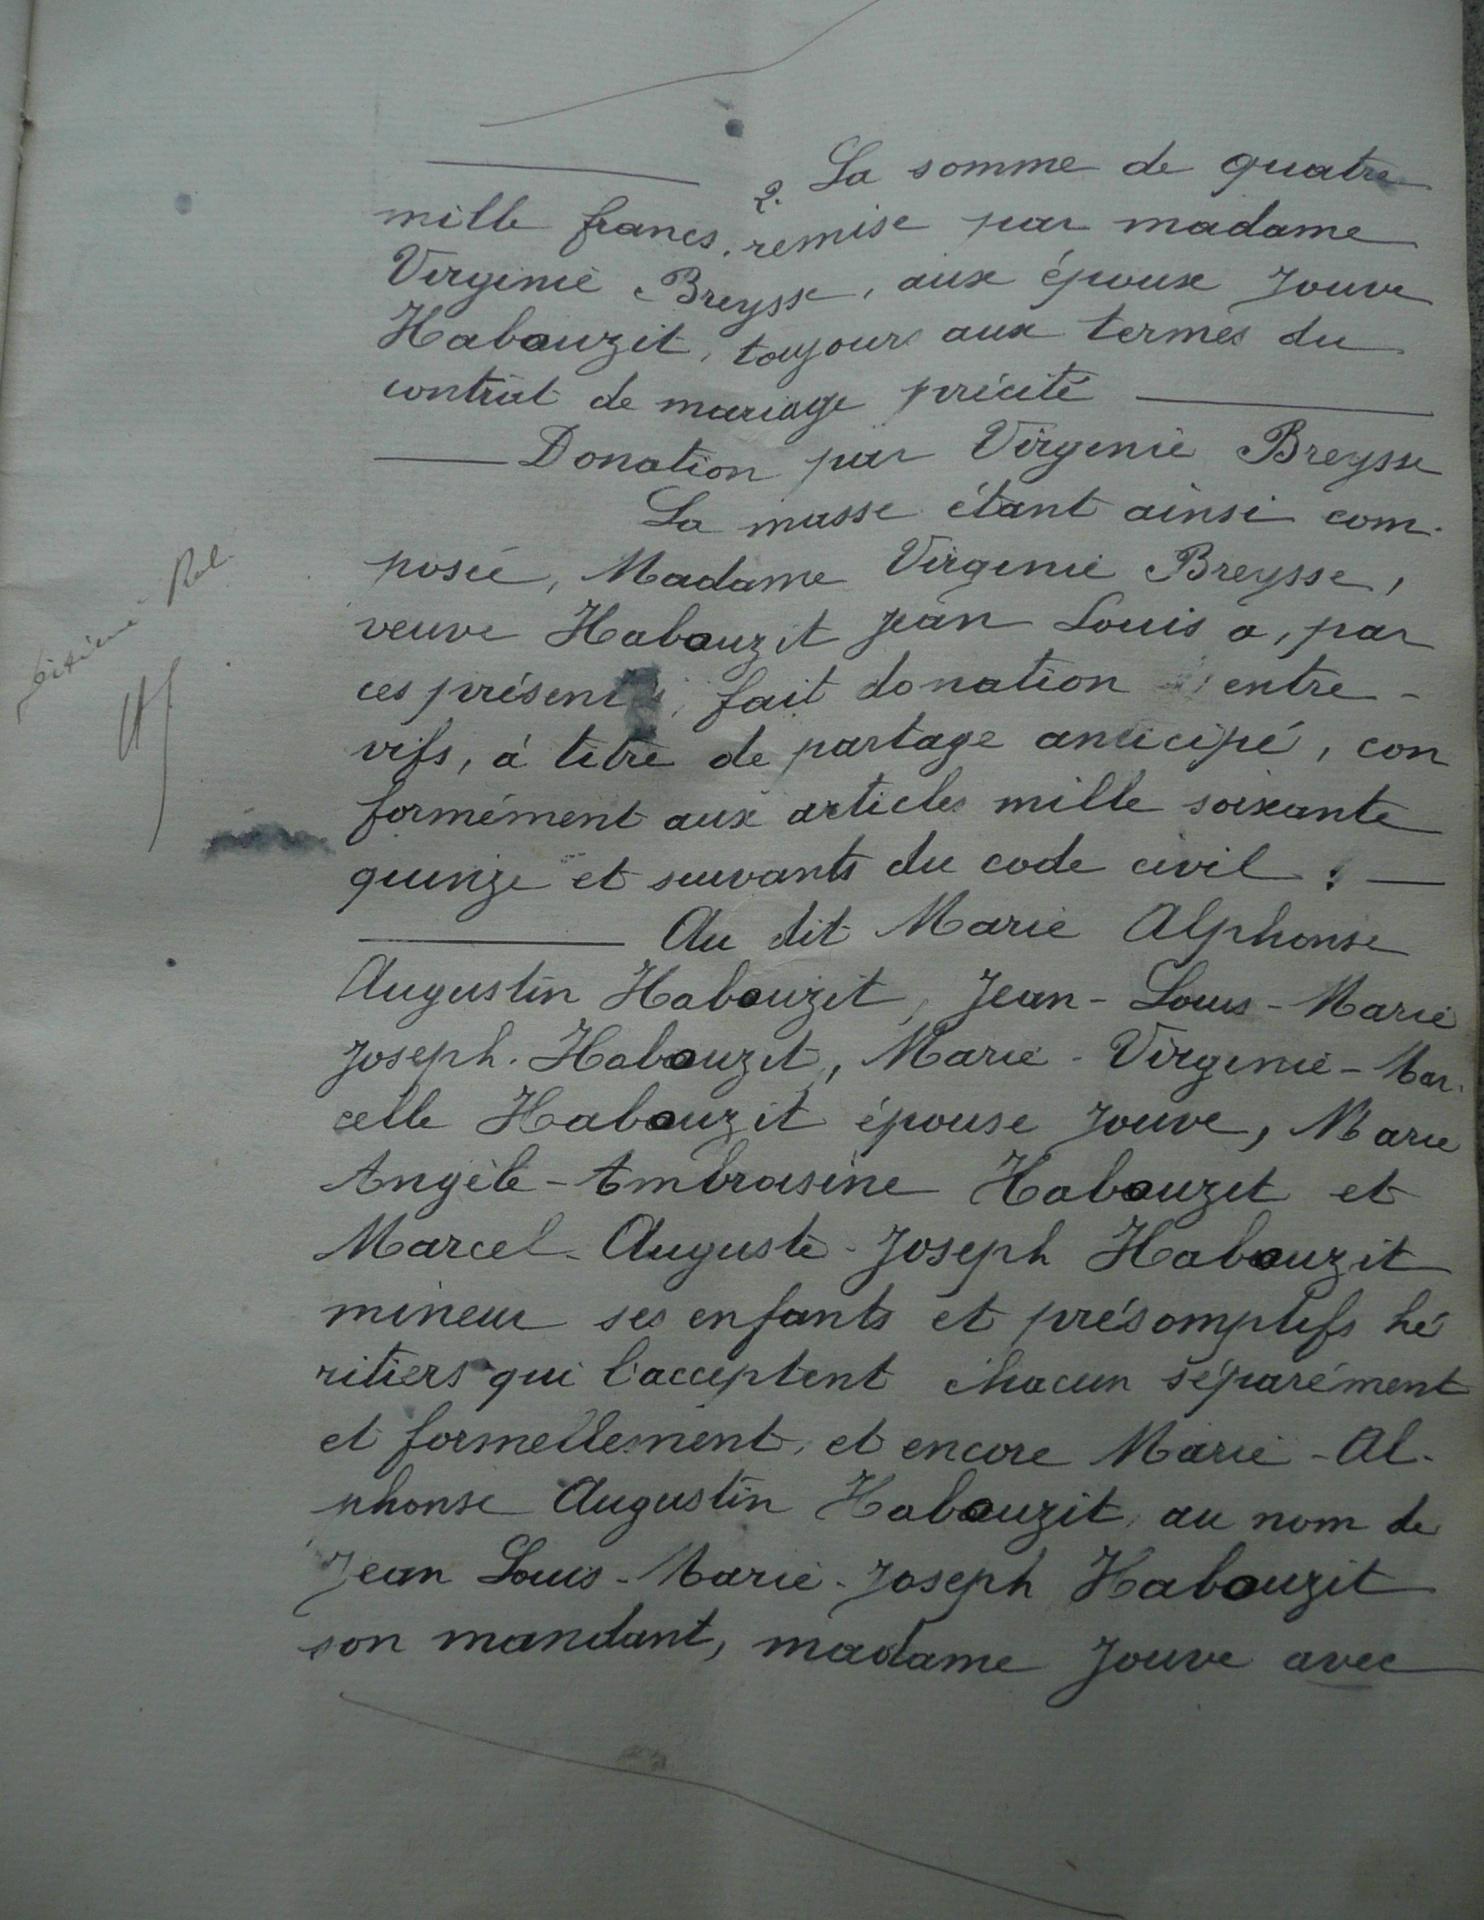 2. La somme de quatre
mille francs, remise par madame
Virginie Breysse, aux époux Jouve
Habouzit, toujours aux termes du
contrat de mariage précité
Donation par Virginie Breysse
La masse étant ainsi com-
posée, Madame Virginie Breysse,
veuve Habouzit Jean Louis a, par
ces présentes, fait donation entre-
vifs, à titre de partage anticipé, con
formément aux articles mille soixante
quinze et suivants du code civil :
Au dit Marie Alphonse
Augustin Habouzit, Jean-Louis-Marie
Joseph-Habouzit, Marie-Virginie-Mar-
celle Habouzit épouse Jouve, Marie
Angèle-Ambroisine Habouzit et
Marcel-Auguste-Joseph Habouzit
mineur ses enfants et présomptifs hé
ritiers qui l'acceptent chacun séparément
et formellement, et encore Marie-Al-
phonse Augustin Habouzit, au nom de
Jean Louis-Marie-Joseph Habouzit
son mandant, madame Jouve avec